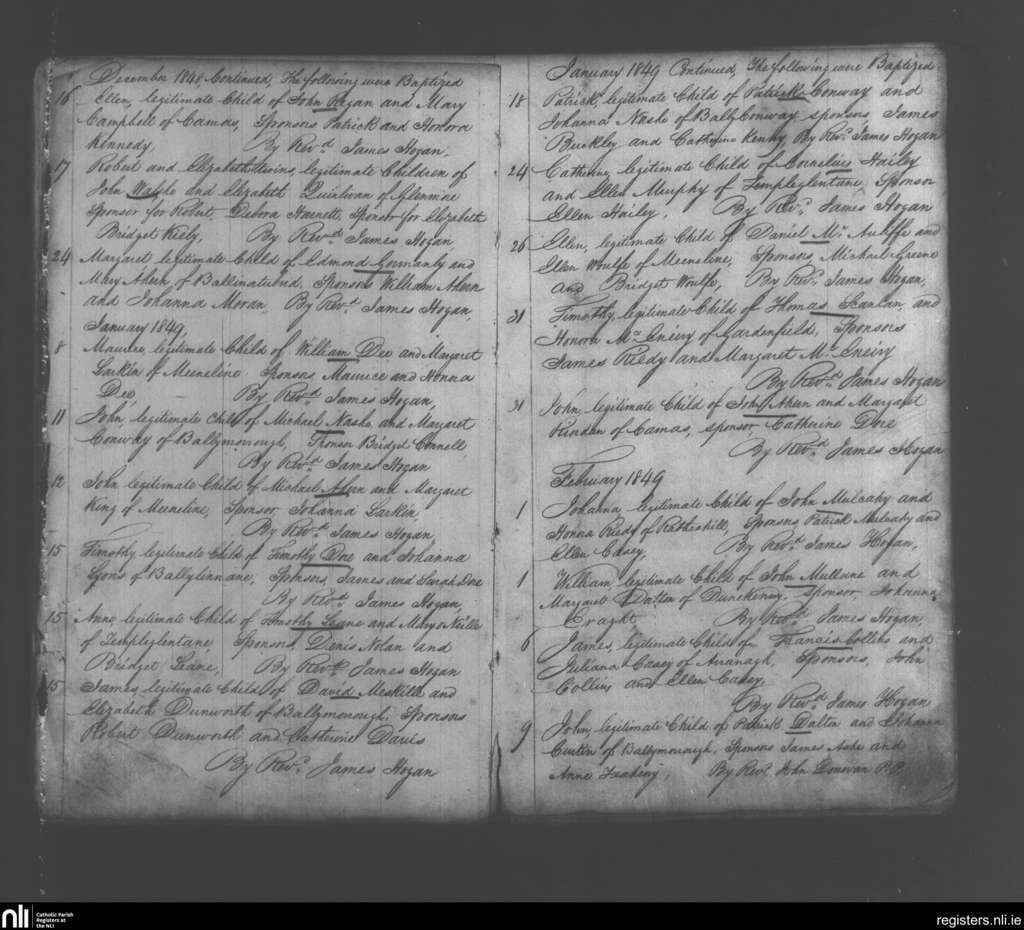 December 1848 Continued, The following were Baptized
16 Ellen, legitimate Child of John Regan and Mary
Campbell of Camas, Sponsors Patrick and Honora
Kennedy. By Revd. James Hogan.
17 Robert and Elizabeth twins, legitimate Children of
John Walshe and Elizabeth Quinlivan of Glenmore
Sponsor for Robert, Debora Harnett, Sponsor for Elizabeth
Bridget Kiely, By Revd. James Hogan,
24 Margaret legitimate Child of Edmond Gormanly and
Mary Ahern, of Sponsors William Ahern
and Johanna Moran, By Revd. James Hogan,
January 1849,
8 Maurice, legitimate Child of William Dee and Margaret
Larkin of Meeneline. Sponsors, Maurice and Honna
Dee, By Revd. James Hogan,
11 John, legitimate Child of Michael Nashe, and Margaret
Conway of Ballymonough, Sponsor Bridget Connell,
By Revd. James Hogan
12 John legitimate Child of Michael Ahern and Margaret
King of Meeneline, Sponsor, Johanna Larkin,
By Revd. James Hogan,
15 Timothy, legitimate Child of Timothy Dore and Johanna
Lyons of Ballylinnane, Sponsors, James and Sarah Dore
By Revd. James Hogan,
15 Anne, legitimate Child of Timothy Leane and Mary o Neille
of Templeglentane Sponsors, Denis Nolan and
Bridget Leane, By Revd. James Hogan
15 James, legitimate Child of David Meskill and
Elizabeth Dunworth of Ballymonough. Sponsors
Robert Dunworth and Catherine Davis
By Revd. James Hogan
January 1849 Continued, The following were Baptized
18 Patrick, legitimate Child of Patrick Conway and
Johanna Nashe of BallyConway, sponsors, James
Buckley and Catherine Kenny, By Revd. James Hogan
24 Catherine, legitimate Child of Cornelius Hailey
and Ellen Murphy of Templeglentane, Sponsor
Ellen Hailey, By Revd. James Hogan
26 Ellen, legitimate Child of Daniel Mc. Auliffe and
Ellen Woulfe of Meeneline, Sponsors, Michael Greene
and Bridget Woulfe, By Revd. James Hogan,
31 Timothy, legitimate Child of Thomas Scanlan, and
Honora Mc. Eneiry of Gardenfield, Sponsors
James Reidy and Margaret Mc. Eneiry
By Revd. James Hogan
31 John, legitimate Child of John Ahern and Margaret
Riordan of Camas, sponsor, Catherine Dore
By Revd. James Hogan
February 1849
1 Johanna, legitimate Child of John Mulcahy and
Honna Reidy of Sponsors, Patrick Mulcahy and
Ellen Casey, By Revd. James Hogan,
1 William, legitimate Child of John Mullane and
Margaret Dalton of Dunekenny. sponsor Johanna
By Revd. James Hogan,
6 James, legitimate Child of Francis Collins and
Juliana Casey of Avanagh, Sponsors, John
Collins and Ellen Casey,
By Revd. James Hogan
9 John legitimate Child of Patrick Dalton and Johanna
Curtin of Ballymonough, Sponsors James Ashe and
Anne By Revd. John Donovan P.P.
nli
Catholic Parish
Registers at
the NLI
registers.nli.ie